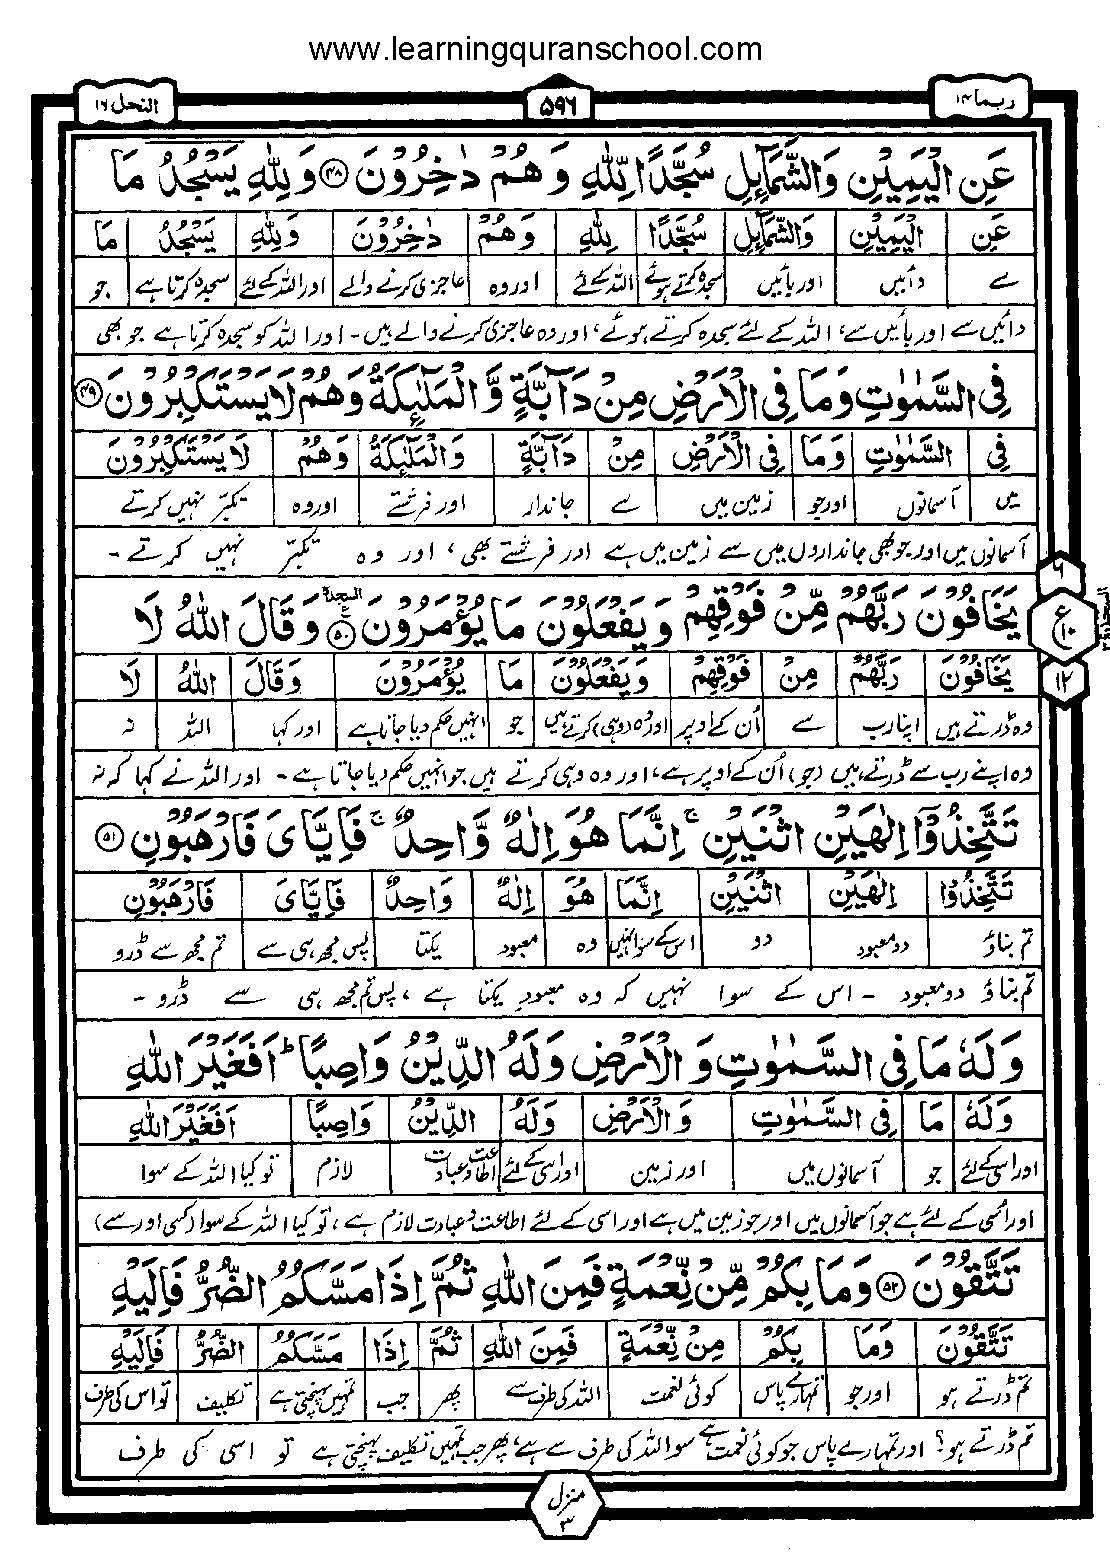 www.learningquranschool.com
ربما ۱۴
۵۹۶
النحل ۱۶
عَنِ الْيَمِيْنِ وَالشَّمَآئِلِ سُجَّدًا لِّلّٰهِ وَهُمْ دٰخِرُوْنَ ﴿۴۸﴾ وَلِلّٰهِ يَسْجُدُ مَا
عَنِ الْيَمِيْنِ وَالشَّمَآئِلِ سُجَّدًا لِلّٰهِ وَهُمْ دٰخِرُوْنَ وَلِلّٰهِ يَسْجُدُ مَا
سے دائیں اور بائیں سجدہ کرتے ہوئے اللہ کے لئے اور وہ عاجزی کرنے والے اور اللہ کے لئے سجدہ کرتا ہے جو
دائیں سے اور بائیں سے، اللہ کے لئے سجدہ کرتے ہوئے، اور وہ عاجزی کرنے والے ہیں۔ اور اللہ کو سجدہ کرتا ہے جو بھی
فِي السَّمٰوٰتِ وَمَا فِي الْاَرْضِ مِنْ دَآبَّةٍ وَّالْمَلٰٓئِكَةُ وَهُمْ لَا يَسْتَكْبِرُوْنَ ﴿۴۹﴾
فِي السَّمٰوٰتِ وَمَا فِي الْاَرْضِ مِنْ دَآبَّةٍ وَالْمَلٰٓئِكَةُ وَهُمْ لَا يَسْتَكْبِرُوْنَ
میں آسمانوں اور جو زمین میں سے جاندار اور فرشتے اور وہ تکبّر نہیں کرتے
آسمانوں میں اور جو بھی جانداروں میں سے زمین میں ہے اور فرشتے بھی، اور وہ تکبّر نہیں کرتے۔
يَخَافُوْنَ رَبَّهُمْ مِّنْ فَوْقِهِمْ وَيَفْعَلُوْنَ مَا يُؤْمَرُوْنَ ﴿۵۰﴾ السجدة وَقَالَ اللّٰهُ لَا
يَخَافُوْنَ رَبَّهُمْ مِنْ فَوْقِهِمْ وَيَفْعَلُوْنَ مَا يُؤْمَرُوْنَ وَقَالَ اللّٰهُ لَا
وہ ڈرتے ہیں اپنا رب سے اُن کے اوپر اور وہ (وہی) کرتے ہیں جو انہیں حکم دیا جاتا ہے اور کہا اللہ نہ
وہ اپنے رب سے ڈرتے ہیں (جو) اُن کے اوپر ہے، اور وہ وہی کرتے ہیں جو انہیں حکم دیا جاتا ہے۔ اور اللہ نے کہا کہ نہ
۶
ع ۱۰
۱۲
تَتَّخِذُوْٓا اِلٰهَيْنِ اثْنَيْنِ ۚ اِنَّمَا هُوَ اِلٰهٌ وَّاحِدٌ ۚ فَاِيَّايَ فَارْهَبُوْنِ ﴿۵۱﴾
تَتَّخِذُوْٓا اِلٰهَيْنِ اثْنَيْنِ اِنَّمَا هُوَ اِلٰهٌ وَاحِدٌ فَاِيَّايَ فَارْهَبُوْنِ
تم بناؤ دو معبود دو اس کے سوا نہیں وہ معبود یکتا پس مجھ ہی سے تم مجھ سے ڈرو
تم بناؤ دو معبود ۔ اس کے سوا نہیں کہ وہ معبود یکتا ہے، پس تم مجھ ہی سے ڈرو۔
وَلَهٗ مَا فِي السَّمٰوٰتِ وَالْاَرْضِ وَلَهُ الدِّيْنُ وَاصِبًا ؕ اَفَغَيْرَ اللّٰهِ
وَلَهٗ مَا فِي السَّمٰوٰتِ وَالْاَرْضِ وَلَهُ الدِّيْنُ وَاصِبًا اَفَغَيْرَ اللّٰهِ
اور اسی کے لئے جو آسمانوں میں اور زمین اور اسی کے لئے اطاعت وعبادت لازم تو کیا اللہ کے سوا
اور اُسی کے لئے ہے جو آسمانوں میں اور جو زمین میں ہے اور اسی کے لئے اطاعت وعبادت لازم ہے، تو کیا اللہ کے سوا (کسی اور سے)
تَتَّقُوْنَ ﴿۵۲﴾ وَمَا بِكُمْ مِّنْ نِّعْمَةٍ فَمِنَ اللّٰهِ ثُمَّ اِذَا مَسَّكُمُ الضُّرُّ فَاِلَيْهِ
تَتَّقُوْنَ وَمَا بِكُمْ مِنْ نِّعْمَةٍ فَمِنَ اللّٰهِ ثُمَّ اِذَا مَسَّكُمُ الضُّرُّ فَاِلَيْهِ
تم ڈرتے ہو اور جو تمہارے پاس کوئی نعمت اللہ کی طرف سے پھر جب تمہیں پہنچتی ہے تکلیف تو اس کی طرف
تم ڈرتے ہو؟ اور تمہارے پاس جو کوئی نعمت ہے سو اللہ کی طرف سے ہے، پھر جب تمہیں تکلیف پہنچتی ہے تو اسی کی طرف
منزل ۳